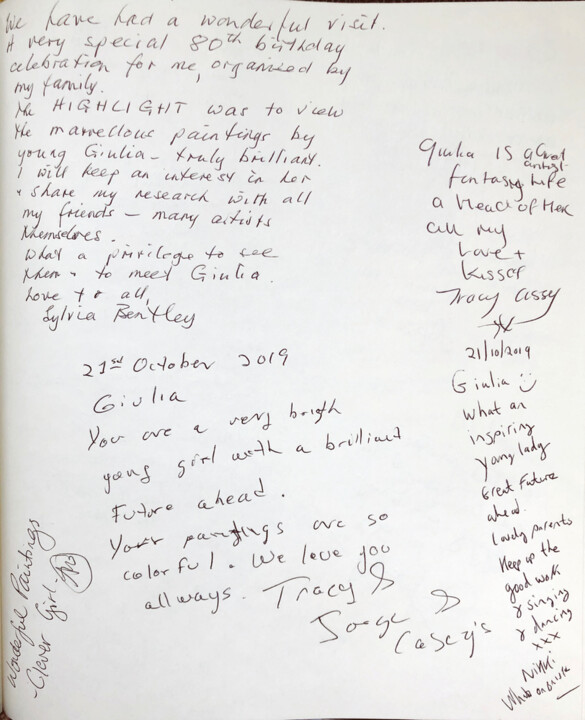 We have had a wonderful visit.
A very special 80th birthday
celebration for me, organised by
my family.
The HIGHLIGHT was to view
the marvellous paintings by
young Giulia - truly brilliant.
I will keep an interest in her
+ share my research with all
my friends - many artists
themselves.
What a privilege to see
them + to meet Giulia.
Love to all,
Sylvia Bentley
Giulia IS a Great
fantasy Life
a Head of Her
all my
Love +
kisses
Tracy
21/10/2019
Giulia
what an
inspiring
young lady
Great Future
ahead.
Lovely parents
Keep up the
good work
& singing
& dancing
xxx
Nikki
21st October 2019
Giulia
You are a very brigth
yong girl with a brilliant
Future ahead.
Your paintings are so
colorful. We love you
all ways. Tracy &
Jorge &
Casey's
Wonderful Paintings
-Clever Girl